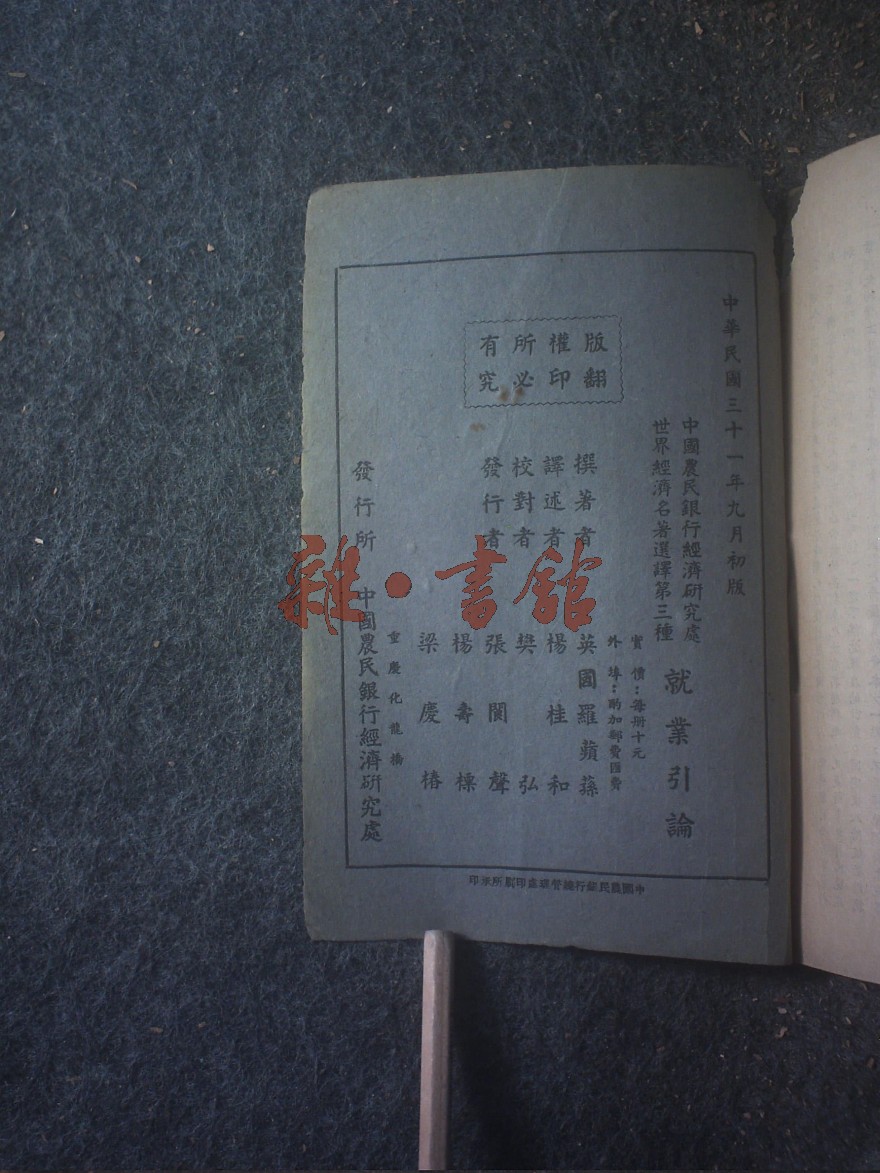 中華民國三十一年九月初版
中國農民銀行經濟研究處
世界經濟名著選譯第三種
就業引論
實價：每册十元
外埠：酌加郵費匯費
版權所有
翻印必究
撰著者 英國羅蘋蓀
譯述者 楊桂和
校對者 樊弘
發行者 張闓聲
楊壽標
梁慶椿
重慶化龍橋
發行所 中國農民銀行經濟研究處
中國農民銀行總管理處印刷所承印
雜·書館